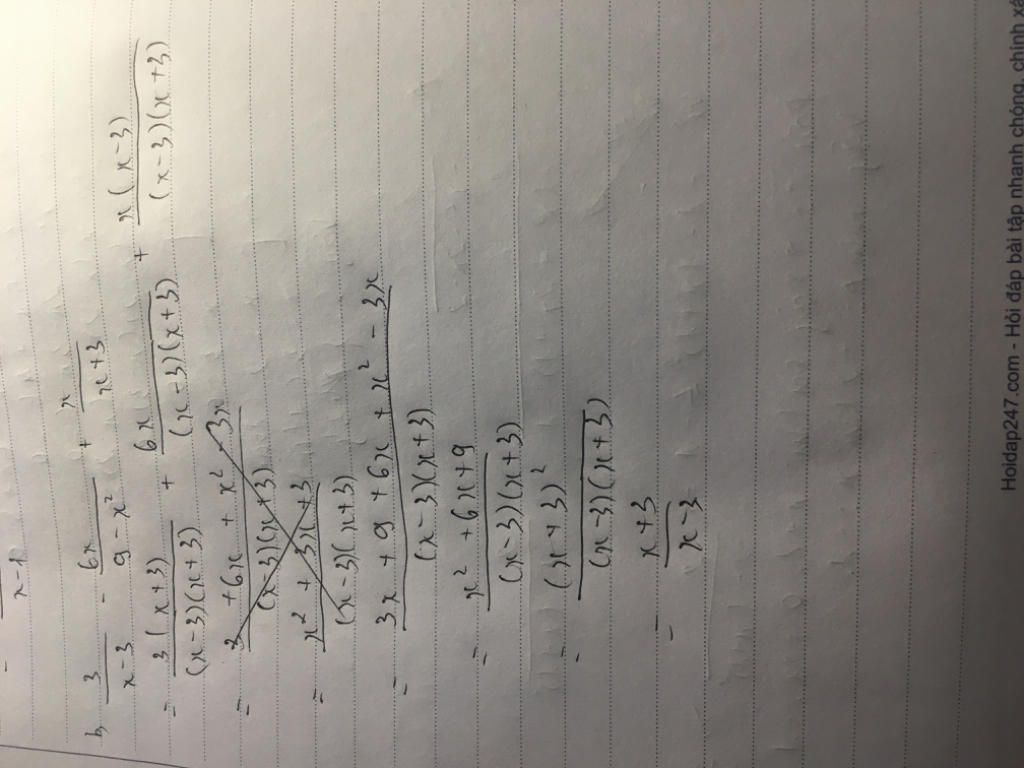 = x-1
b, 3/(x-3) - 6x/(9-x²) + x/(x+3)
= 3(x+3)/((x-3)(x+3)) + 6x/((x-3)(x+3)) + x(x-3)/((x-3)(x+3))
= (3+6x+x²-3x)/((x-3)(x+3))
= (x²+3x+3)/((x-3)(x+3))
= (3x+9+6x+x²-3x)/((x-3)(x+3))
= (x²+6x+9)/((x-3)(x+3))
= (x+3)²/((x-3)(x+3))
= (x+3)/(x-3)
Hoidap247.com - Hỏi đáp bài tập nhanh chóng, chính xá